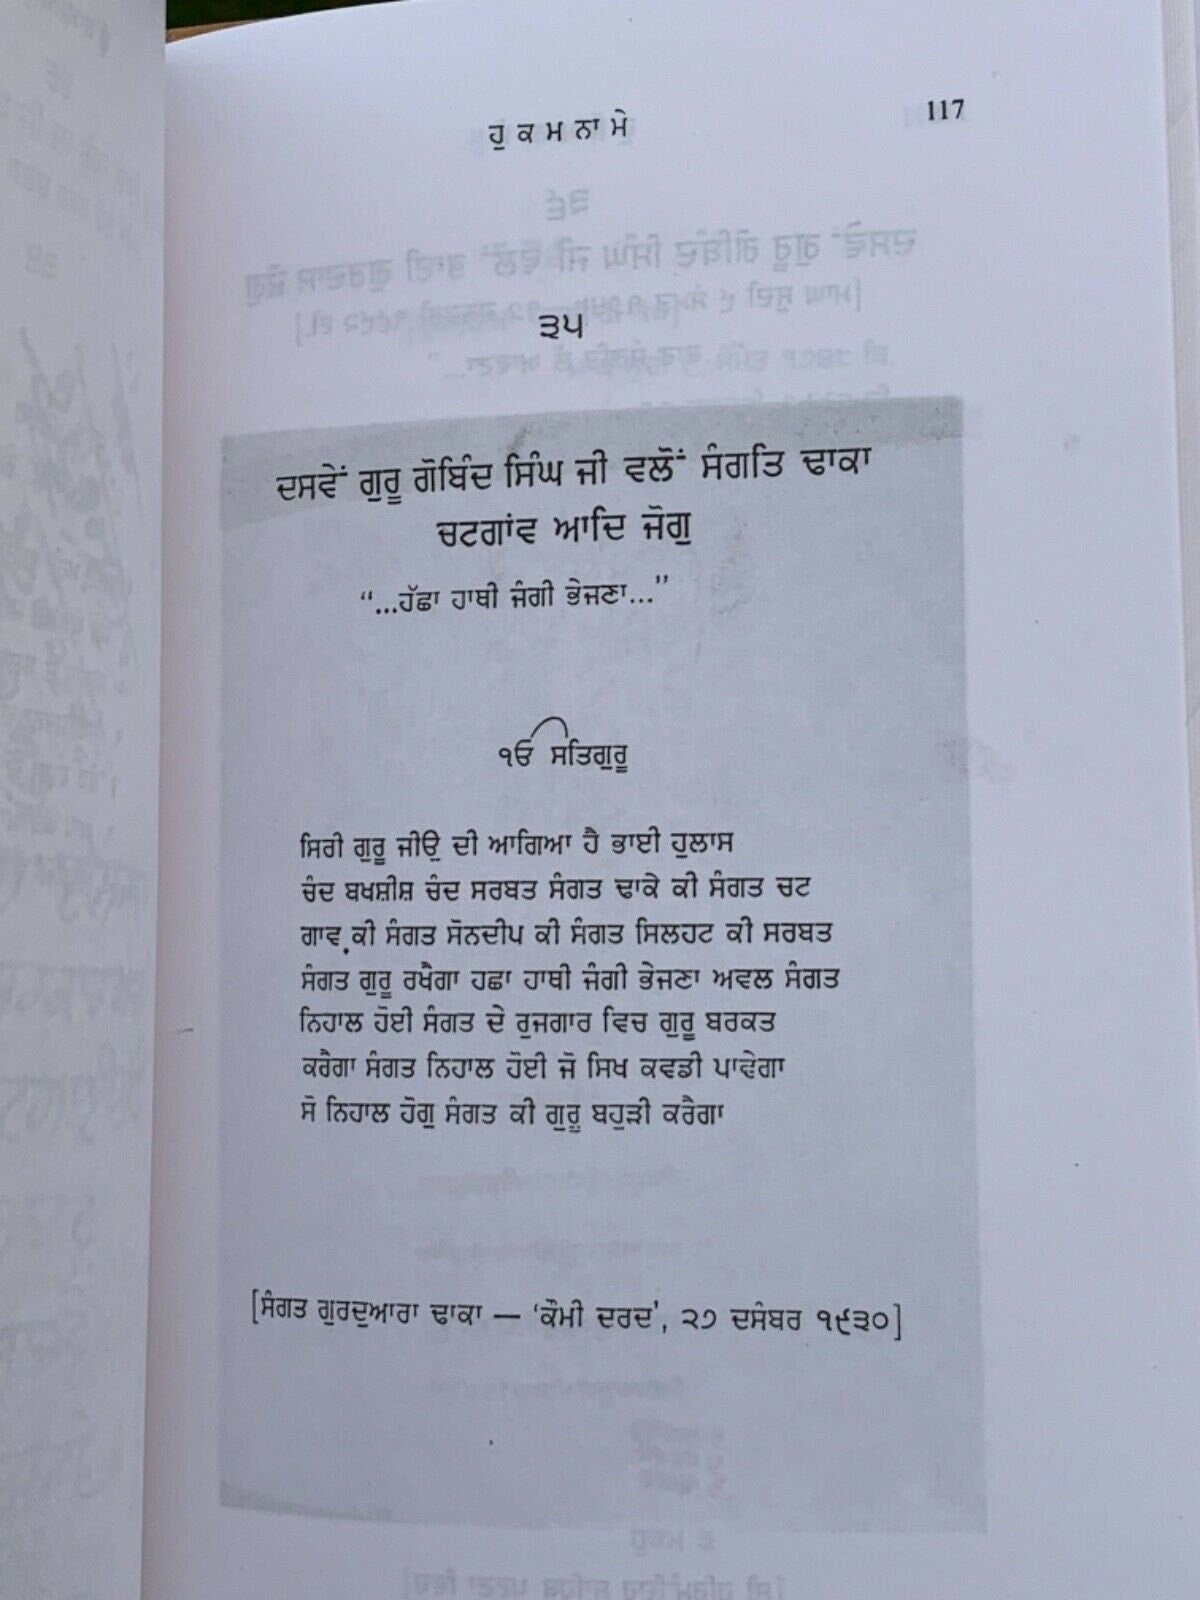 ਹੁਕਮਨਾਮੇ
117
੩੫
ਦਸਵੇਂ ਗੁਰੂ ਗੋਬਿੰਦ ਸਿੰਘ ਜੀ ਵਲੋਂ ਸੰਗਤਿ ਢਾਕਾ
ਚਟਗਾਂਵ ਆਦਿ ਜੋਗੁ
“...ਹੱਛਾ ਹਾਥੀ ਜੰਗੀ ਭੇਜਣਾ...”
੧ਓ ਸਤਿਗੁਰੂ
ਸਿਰੀ ਗੁਰੂ ਜੀਉ ਦੀ ਆਗਿਆ ਹੈ ਭਾਈ ਹੁਲਾਸ
ਚੰਦ ਬਖਸ਼ੀਸ਼ ਚੰਦ ਸਰਬਤ ਸੰਗਤ ਢਾਕੇ ਕੀ ਸੰਗਤ ਚਟ
ਗਾਵ ਕੀ ਸੰਗਤ ਸੋਨਦੀਪ ਕੀ ਸੰਗਤ ਸਿਲਹਟ ਕੀ ਸਰਬਤ
ਸੰਗਤ ਗੁਰੂ ਰਖੈਗਾ ਹਛਾ ਹਾਥੀ ਜੰਗੀ ਭੇਜਣਾ ਅਵਲ ਸੰਗਤ
ਨਿਹਾਲ ਹੋਈ ਸੰਗਤ ਦੇ ਰੁਜਗਾਰ ਵਿਚ ਗੁਰੂ ਬਰਕਤ
ਕਰੈਗਾ ਸੰਗਤ ਨਿਹਾਲ ਹੋਈ ਜੋ ਸਿਖ ਕਵਡੀ ਪਾਵੇਗਾ
ਸੋ ਨਿਹਾਲ ਹੋਗੁ ਸੰਗਤ ਕੀ ਗੁਰੂ ਬਹੁੜੀ ਕਰੈਗਾ
[ਸੰਗਤ ਗੁਰਦੁਆਰਾ ਢਾਕਾ — ‘ਕੌਮੀ ਦਰਦ’, ੨੭ ਦਸੰਬਰ ੧੯੩੦]